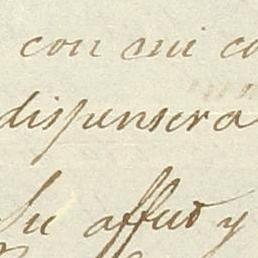 con mi co
dispensera
Su affmo y